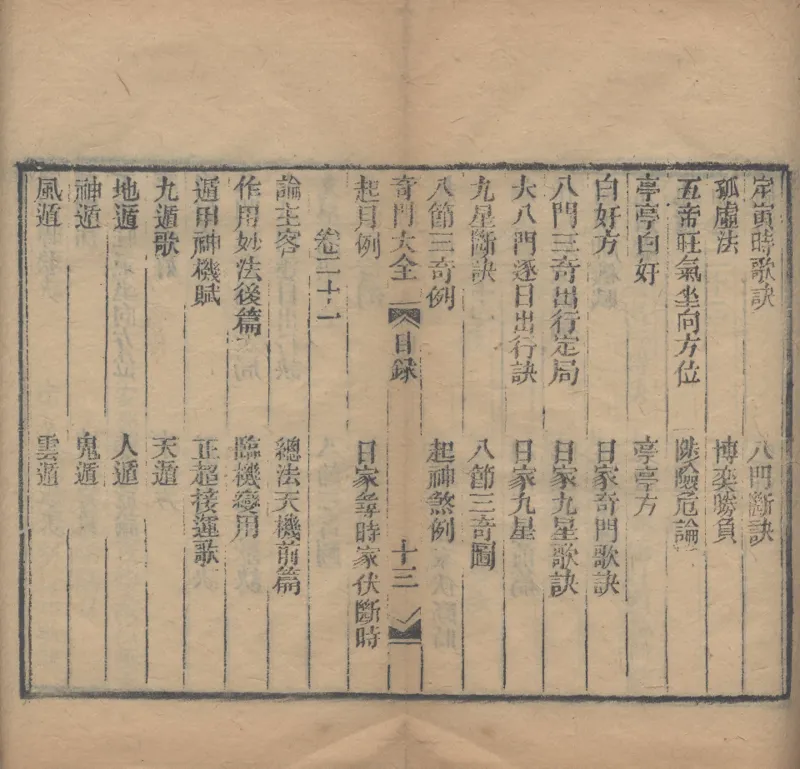 定寅時歌訣　八門斷訣
孤虛法　博奕勝負
五帝旺氣坐向方位　陟險危論
亭亭白奸　亭亭方
白奸方　日家奇門歌訣
八門三奇出行定局　日家九星歌訣
大八門逐日出行訣　日家九星
九星斷訣　八節三奇圖
八節三奇例　起神煞例
奇門大全　目錄　十三
起月例　日家尋時家伏斷時
卷二十二
論主客　總法天機前篇
作用妙法後篇　臨機變用
遁甲神機賦　正超接運歌
九遁歌　天遁
地遁　人遁
神遁　鬼遁
風遁　雲遁